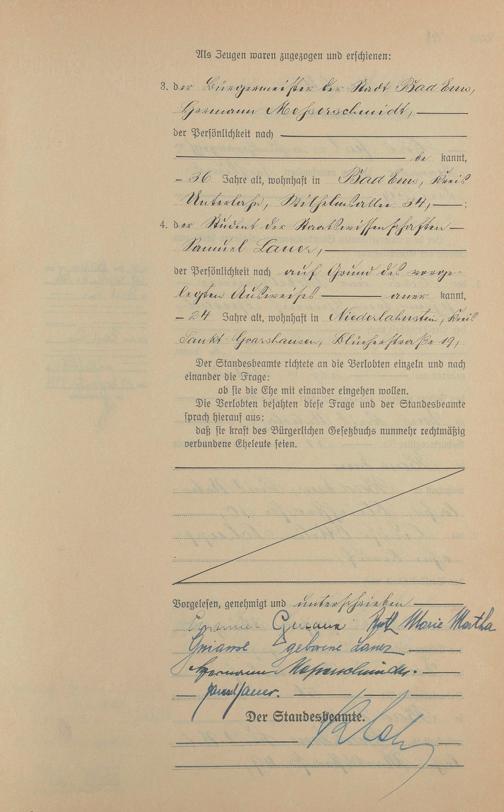 Als Zeugen waren zugezogen und erschienen:
3. der Bürgermeister der Stadt Bad Ems,
Hermann Messerschmidt,
der Persönlichkeit nach
be kannt,
36 Jahre alt, wohnhaft in Bad Ems, Kreis
Unterlahn, Wilhelmsallee 34, ;
4. der Student der Staatswissenschaften
Samuel Lauer,
der Persönlichkeit nach auf Grund des vorge-
legten Ausweises aner kannt,
24 Jahre alt, wohnhaft in Niederlahnstein, Kreis
Sankt Goarshausen, Blücherstraße 19,
Der Standesbeamte richtete an die Verlobten einzeln und nach
einander die Frage:
ob sie die Ehe mit einander eingehen wollen.
Die Verlobten bejahten diese Frage und der Standesbeamte
sprach hierauf aus:
daß sie kraft des Bürgerlichen Gesetzbuchs nunmehr rechtmäßig
verbundene Eheleute seien.
Vorgelesen, genehmigt und unterschrieben
Ruth Marie Martha
geborene Lauer
Hermann Messerschmidt.
Lauer.
Der Standesbeamte.